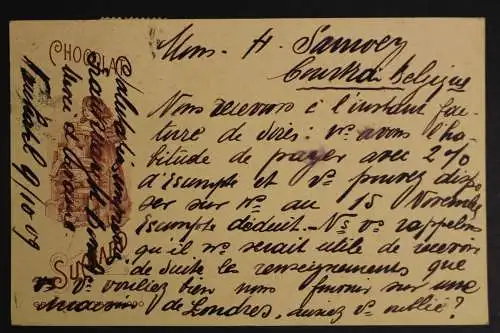 Mons. H. Samoey
Courtrai Belgique
Nous recevons à l'instant fac-
ture de Soies: ns. avons l'ha-
bitude de payer avec 2%
d'Escompte et vs pouvez dispo
ser sur ns. au 15 Novembre
Escompte déduit. Ns vs. rappelons
qu'il ns. serait utile de recevoir
de suite le renseignements que
vs. vouliez bien nous fournir sur une
maison de Londres, auriez vs. oublié?
CHOCOLAT
SUCHARD
9/10 09